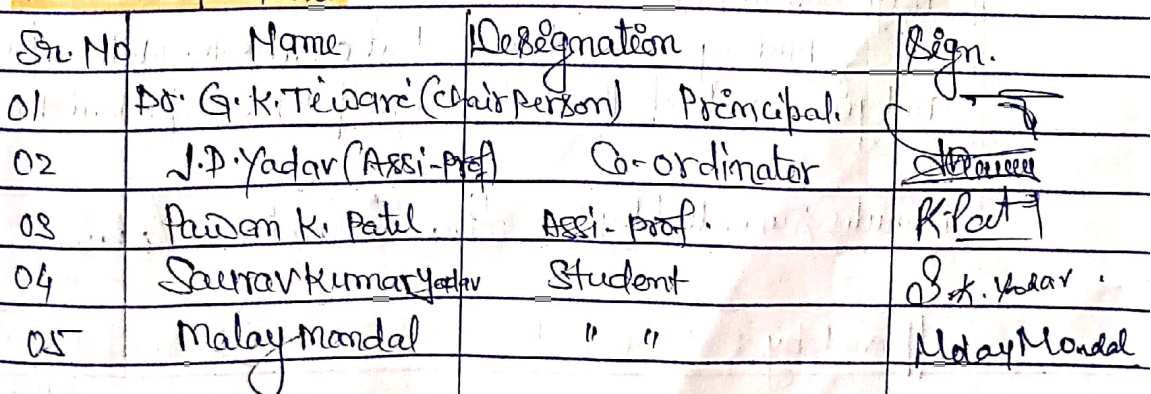 Sr. No Name Designation Sign.
01 Dr. G.K. Tiwari (Chairperson) Principal.
02 J.P. Yadav (Assi-prof) Co-ordinator
03 Pawan K. Patel. Assi-prof. K.Patl
04 Saurav Kumar Yadav Student S.K. Yadav.
05 Malay Mondal " " Malay Mondal